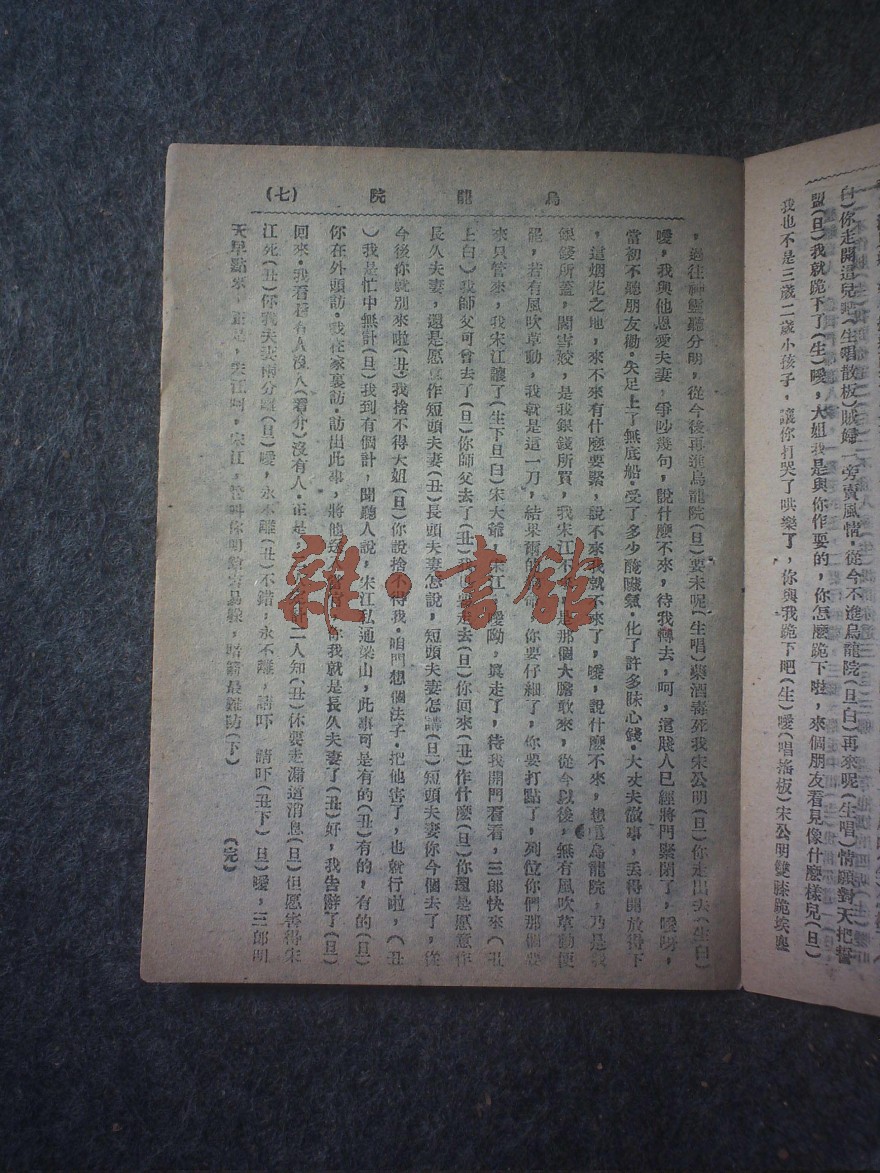 白)你走開這兒吧(生唱散板)賊婦一旁賣風情·從今不進烏龍院(旦白)再來呢(生唱)情願對天把誓
盟(旦)我就跪下了(生)嗳,大姐我是與你作耍的,你怎麽跪下啦,來個朋友看見像什麽樣兒(旦)
我也不是三歲二歲小孩子,讓你打哭了哄樂了,你與我跪下吧(生)嗳(唱搖板)宋公明雙膝跪埃塵
烏龍院 (七)
,過往神靈聽分明,從今後再進烏龍院(旦)要來呢(生唱)藥酒毒死我宋公明(旦)你走出去(生白)
嗳,我與他恩愛夫妻,爭吵幾句,說什麽不來,待我轉去,呵,這賤人已經將門緊閉了,嗳呀,
當初不聽朋友勸·失足上了無底船·受了多少醃臢氣·化了許多昧心錢·大丈夫做事,丢得開放得下
,這烟花之地,來不來有什麽要緊,說不來我就不來了,嗳,說什麽不來,想這烏龍院,乃是我
銀錢所蓋,閻雪姣,是我銀錢所買,我宋江不來,是那個大膽敢來,從今以後,無有風吹草動便
罷,若有風吹草動,我就是這一刀,結果爾的性命,你要仔細了,你要打點了,列位你們那個要
來只管來,我宋江讓了(生下旦白)宋大爺,宋江,嗳呦,眞走了,待我開門看看,三郎快來(丑
上白)我師父可曾去了(旦)你師父去了(丑)我也要走去(旦)你回來(丑)作什麽(旦)你還是愿意作
長久夫妻,還是愿意作短頭夫妻(丑)長頭夫妻怎說,短頭夫妻怎講(旦)短頭夫妻你今個去了,從
今後你就別來啦(丑)我捨不得大姐(旦)你說捨不得我·咱門想個法子·把他害了,也就行啦,(丑
)我是忙中無計(旦)我到有個計,聞聽人說,宋江私通梁山,此事可是有的(丑)有的,有的(旦)
你在外頭訪·我在家裏訪·訪出此事,將他送了當官,你我就是長久夫妻了(丑)好,我告辭了(旦)
回來·我看看有人沒人(看介)沒有人·正是,計二人知(丑)休要走漏這消息(旦)但愿害得宋
江死(丑)你我夫妻兩分離(旦)嗳,永不離(丑)不錯,永不離,請吓 請吓(丑下)旦)嗳,三郎明
天早點來,正是,宋江呵,宋江,管叫你明鎗容易躱,暗箭最難防(下) (完)